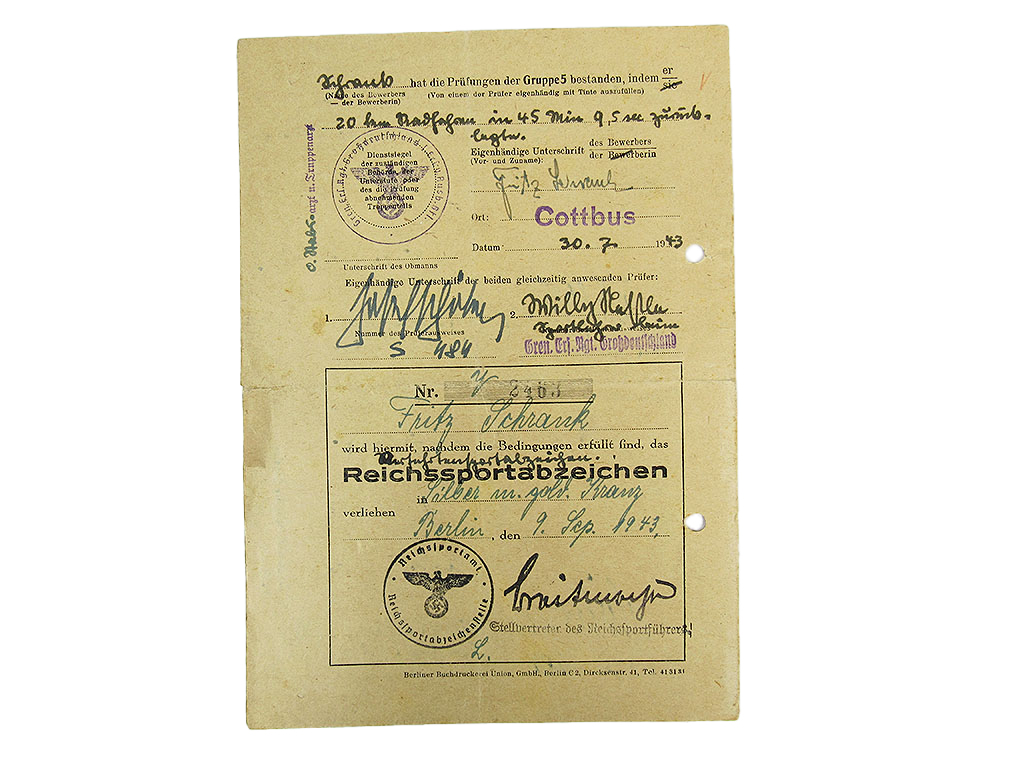 Schrank hat die Prüfungen der Gruppe 5 bestanden, indem er
sie
(Name des Bewerbers (Von einem der Prüfer eigenhändig mit Tinte auszufüllen)
— der Bewerberin)
20 km Radfahren in 45 Min 9,5 sec zurück-
legte.
des Bewerbers
Eigenhändige Unterschrift der Bewerberin
(Vor- und Zuname):
Fritz Schrank
Dienstsiegel
der zuständigen
Behörde, der
Unterstufe oder
des die Prüfung
abnehmenden
Truppenteils
arzt u. Truppenarzt
Ort: Cottbus
Datum 30. 7. 1943
Unterschrift des Obmanns
Eigenhändige Unterschrift der beiden gleichzeitig anwesenden Prüfer:
1. 2. Willy
Nummer des Prüferausweises
S 484
Gren. Ers. Rgt. Großdeutschland
Nr. V 2463
Fritz Schrank
wird hiermit, nachdem die Bedingungen erfüllt sind, das
Versehrtensportabzeichen.
Reichssportabzeichen
in Silber m. gold. Kranz
verliehen
Berlin, den 9. Sep. 1943
Reichssportamt
Reichssportabzeichenstelle
Stellvertreter des Reichssportführers!
L.
Berliner Buchdruckerei Union, GmbH., Berlin C 2, Dircksenstr. 41, Tel. 413131